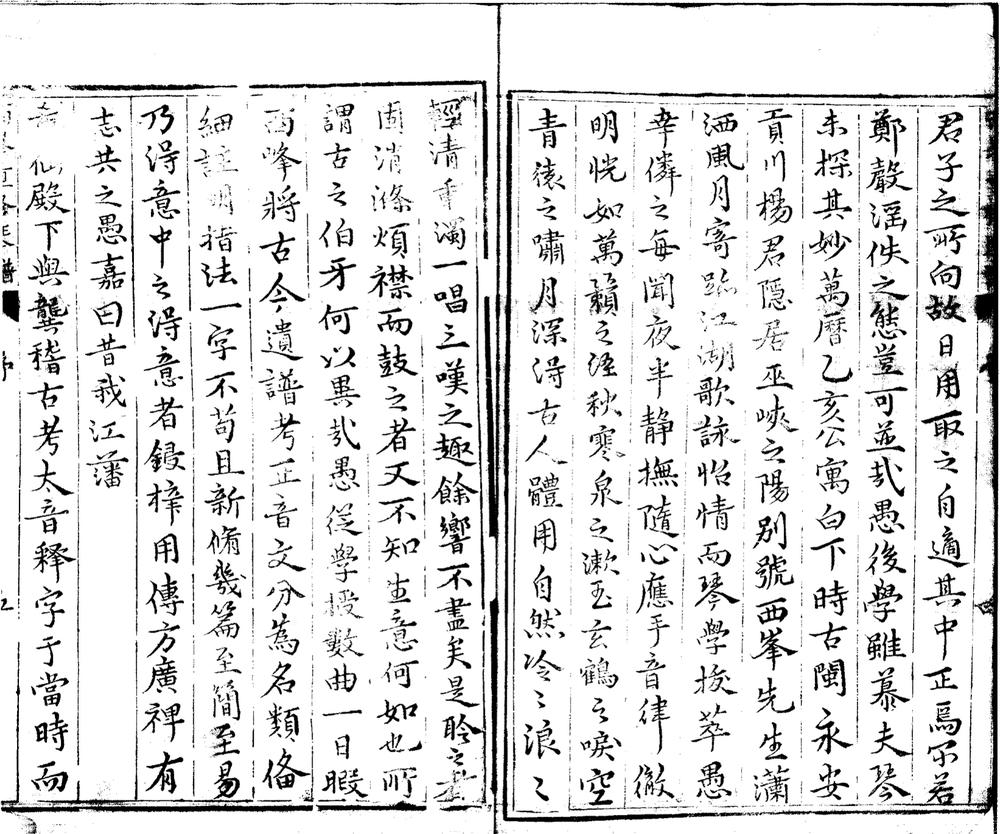 君子之所向故日用取之自適其中正焉不若
鄭聲滛佚之態豈可並㦲愚後學雖慕夫琴
未探其妙萬曆乙亥公寓白下時古閩永安
貢川楊君隱居巫峽之陽別號西峯先生瀟
洒風月寄跡江湖歌詠怡情而琴學拔萃愚
幸隣之每聞夜半静撫隨心應手音律儆
明恍如萬籟之語秋寒泉之漱玉玄鶴之唳空
青猿之嘯月深得古人體用自然冷〻浪〻
輕清重濁一唱三嘆之趣餘響不盡矣是聆之者
固消滌煩襟而鼓之者又不知生意何如也所
謂古之伯牙何以異㢤愚從學授數曲一日暇
西峰將古今遺譜考正音文分為名類俻
細註明指法一字不苟且新脩幾篇至簡至易
乃得意中之得意者鋟梓用傳方廣裨有
志共之愚嘉曰昔我江藩
仙殿下與龔稽古考太音釋字于當時而
譜